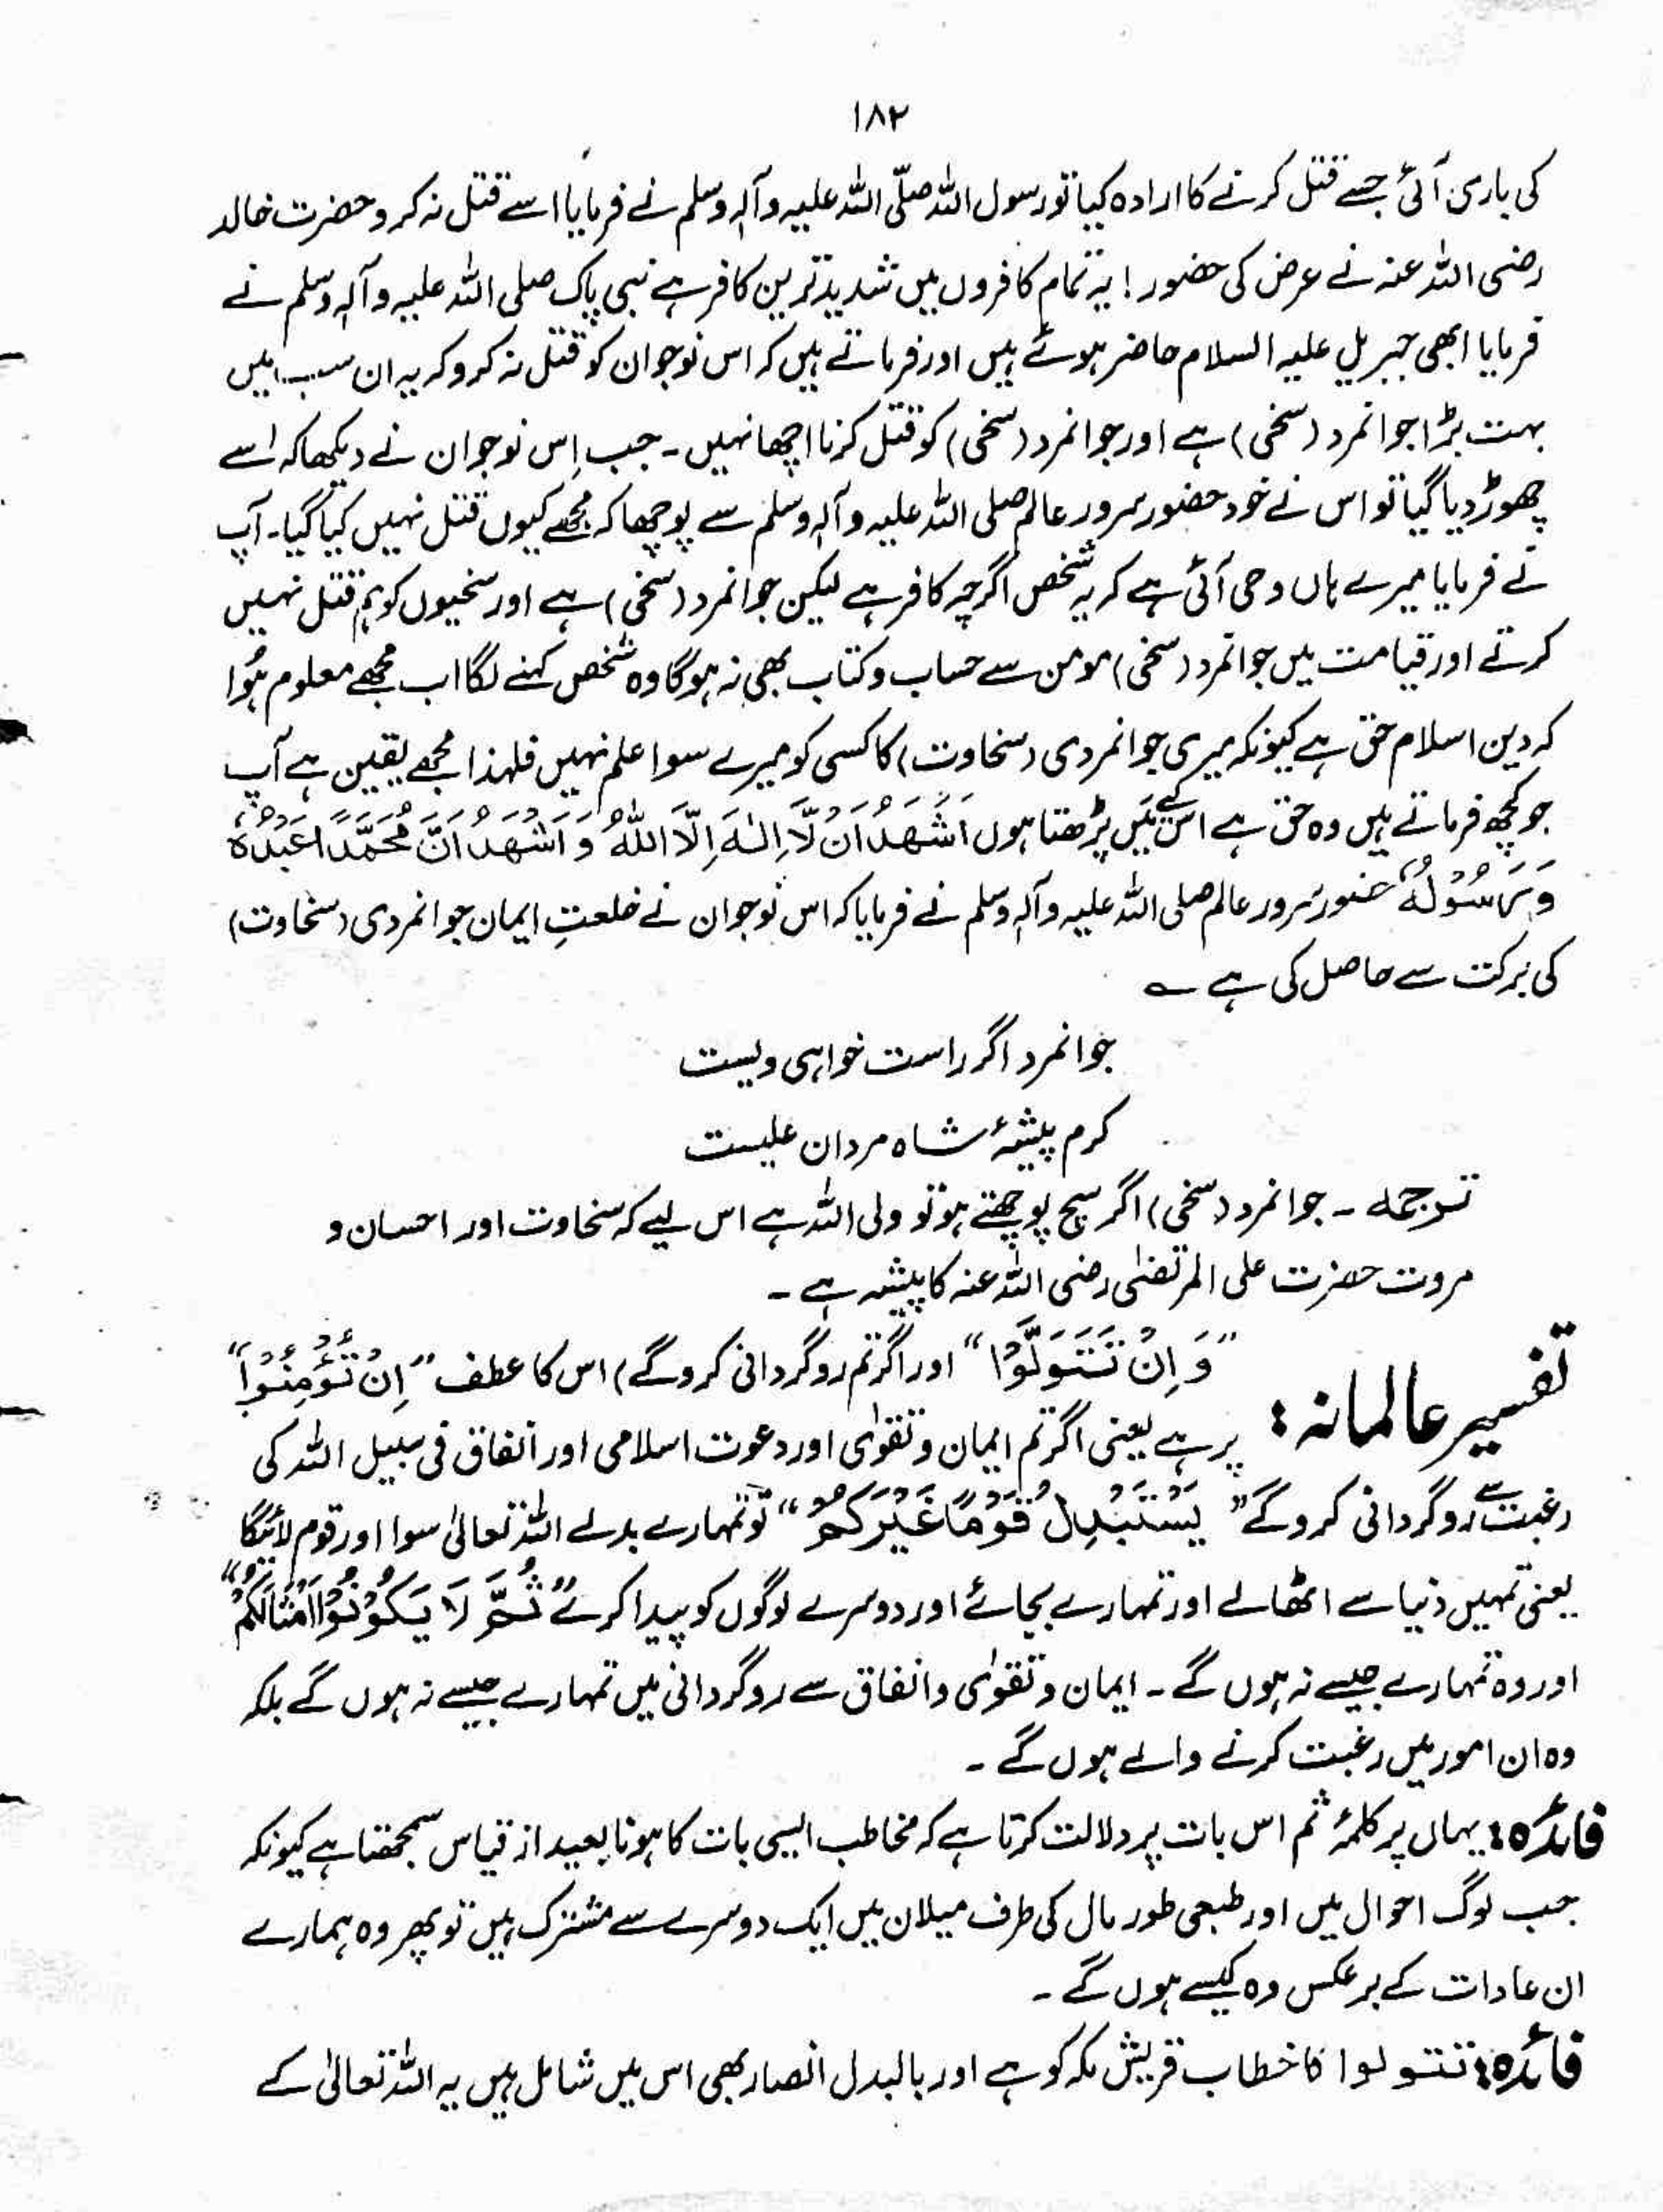 ۱۸۲
کی باری آئی جسے قتل کرنے کا ارادہ کیا تو رسول اللہ صلّی اللہ علیہ وآلہٖ وسلم نے فرمایا اسے قتل نہ کرو حضرت خالد
رضی اللہ عنہ نے عرض کی حضور! یہ تمام کافروں میں شدید ترین کافر ہے نبی پاک صلی اللہ علیہ وآلہٖ وسلم نے
فرمایا ابھی جبریل علیہ السلام حاضر ہوئے ہیں اور فرماتے ہیں کہ اس نوجوان کو قتل نہ کرو کہ یہ ان سب میں
بہت بڑا جوانمرد (سخی) ہے اور جوانمرد (سخی) کو قتل کرنا اچھا نہیں ۔ جب اِس نوجوان نے دیکھا کہ اُسے
چھوڑ دیا گیا تو اس نے خود حضور سرور عالم صلی اللہ علیہ وآلہٖ وسلم سے پوچھا کہ مجھے کیوں قتل نہیں کیا گیا۔ آپ
نے فرمایا میرے ہاں وحی آئی ہے کہ یہ شخص اگرچہ کافر ہے لیکن جوانمرد (سخی) ہے اور سخیوں کو ہم قتل نہیں
کرتے اور قیامت میں جوانمرد (سخی) مومن سے حساب و کتاب بھی نہ ہوگا وہ شخص کہنے لگا اب مجھے معلوم ہُوا
کہ دین اسلام حق ہے کیونکہ میری جوانمردی (سخاوت) کا کسی کو میرے سوا علم نہیں فلہٰذا مجھے یقین ہے آپ
جو کچھ فرماتے ہیں وہ حق ہے اس لیے میں پڑھتا ہوں اَشْهَدُ اَنْ لَّا اِلٰهَ اِلَّا اللّٰهُ وَ اَشْهَدُ اَنَّ مُحَمَّدًا عَبْدُهٗ
وَ رَسُوْلُهٗ حضور سرور عالم صلی اللہ علیہ وآلہٖ وسلم نے فرمایا کہ اس نوجوان نے خلعتِ ایمان جوانمردی (سخاوت)
کی برکت سے حاصل کی ہے ؎
جوانمرد اگر راست خواہی ولیست
کرم پیشۂ شاہ مردان علیست
ترجمہ ۔ جوانمرد (سخی) اگر سچ پوچھتے ہو تو ولی اللہ ہے اس لیے کہ سخاوت اور احسان و
مروت حضرت علی المرتضٰی رضی اللہ عنہ کا پیشہ ہے ۔
تفسیر عالمانہ : "وَ اِنْ تَتَوَلَّوْا" اور اگر تم روگردانی کرو گے) اس کا عطف "اِنْ تُؤْمِنُوْا"
پر ہے یعنی اگر تم ایمان و تقوٰی اور دعوت اسلامی اور انفاق فی سبیل اللہ کی
رغبت سے روگردانی کرو گے "یَسْتَبْدِلْ قَوْمًا غَیْرَكُمْ" تو تمہارے بدلے اللہ تعالیٰ سوا اور قوم لائیگا
یعنی تمہیں دنیا سے اٹھالے اور تمہارے بجائے اور دوسرے لوگوں کو پیدا کرے "ثُمَّ لَا یَكُوْنُوْا اَمْثَالَكُمْ"
اور وہ تمہارے جیسے نہ ہوں گے ۔ ایمان و تقوٰی و انفاق سے روگردانی میں تمہارے جیسے نہ ہوں گے بلکہ
وہ ان امور میں رغبت کرنے والے ہوں گے ۔
فائدہ : یہاں پر کلمۂ ثم اس بات پر دلالت کرتا ہے کہ مخاطب ایسی بات کا ہونا بعید از قیاس سمجھتا ہے کیونکہ
جب لوگ احوال میں اور طبعی طور مال کی طرف میلان میں ایک دوسرے سے مشترک ہیں تو پھر وہ ہمارے
ان عادات کے برعکس وہ کیسے ہوں گے ۔
فائدہ : تتولوا کا خطاب قریش مکہ کو ہے اور بالبدل انصار بھی اس میں شامل ہیں یہ اللہ تعالیٰ کے